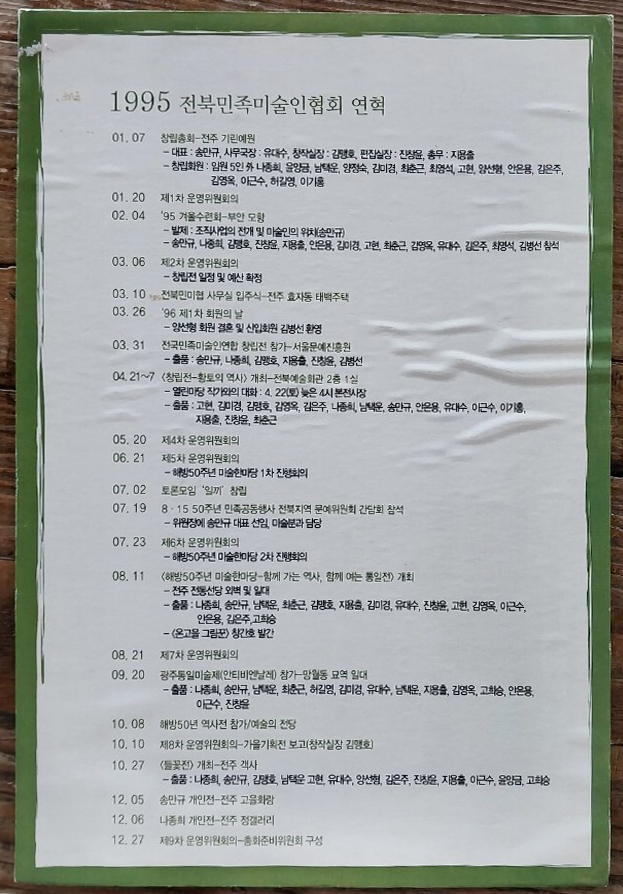 1995 전북민족미술인협회 연혁
01. 07 창립총회-전주 기린예원
- 대표 : 송만규, 사무국장 : 유대수, 창작실장 : 김맹호, 편집실장 : 진창윤, 총무 : 지용출
- 창립회원 : 임원 5인 外 나종희, 윤양금, 남택운, 양정숙, 김미경, 최춘근, 최영석, 고현, 양선형, 안은용, 김은주,
김영옥, 이근수, 허길영, 이기홍
01. 20 제1차 운영위원회의
02. 04 '95 겨울수련회-부안 모항
- 발제 : 조직사업의 전개 및 미술인의 위치(송만규)
- 송만규, 나종희, 김맹호, 진창윤, 지용출, 안은용, 김미경, 고현, 최춘근, 김영옥, 유대수, 김은주, 최영석, 김병선 참석
03. 06 제2차 운영위원회의
- 창립전 일정 및 예산 확정
03. 10 전북민미협 사무실 입주식-전주 효자동 태백주택
03. 26 '96 제1차 회원의 날
- 양선형 회원 결혼 및 신입회원 김병선 환영
03. 31 전국민족미술인연합 창립전 참가-서울문예진흥원
- 출품 : 송만규, 나종희, 김맹호, 지용출, 진창윤, 김병선
04. 21~7 〈창립전-황토의 역사〉 개최-전북예술회관 2층 1실
- 열린마당 작가와의 대화 : 4. 22(토) 늦은 4시 본전시장
- 출품 : 고현, 김미경, 김맹호, 김영옥, 김은주, 나종희, 남택운, 송만규, 안은용, 유대수, 이근수, 이기홍,
지용출, 진창윤, 최춘근
05. 20 제4차 운영위원회의
06. 21 제5차 운영위원회의
- 해방50주년 미술한마당 1차 진행회의
07. 02 토론모임 '일끼' 창립
07. 19 8 · 15 50주년 민족공동행사 전북지역 문예위원회 간담회 참석
- 위원장에 송만규 대표 선임, 미술분과 담당
07. 23 제6차 운영위원회의
- 해방50주년 미술한마당 2차 진행회의
08. 11 〈해방50주년 미술한마당-함께 가는 역사, 함께 여는 통일전〉 개최
- 전주 전동성당 외벽 및 일대
- 출품 : 나종희, 송만규, 남택운, 최춘근, 김맹호, 지용출, 김미경, 유대수, 진창윤, 고현, 김영옥, 이근수,
안은용, 김은주,고희승
- 〈온고을 그림꾼〉 창간호 발간
08. 21 제7차 운영위원회의
09. 20 광주통일미술제(안티비엔날레) 참가-망월동 묘역 일대
- 출품 : 나종희, 송만규, 남택운, 최춘근, 허길영, 김미경, 유대수, 남택운, 지용출, 김영옥, 고희승, 안은용,
이근수, 진창윤
10. 08 해방50년 역사전 참가/예술의 전당
10. 10 제8차 운영위원회의-가을기획전 보고(창작실장 김맹호)
10. 27 〈들꽃전〉 개최-전주 객사
- 출품 : 나종희, 송만규, 김맹호, 남택운 고현, 유대수, 양선형, 김은주, 진창윤, 지용출, 이근수, 윤양금, 고희승
12. 05 송만규 개인전-전주 고을화랑
12. 06 나종희 개인전-전주 정갤러리
12. 27 제9차 운영위원회의-총회준비위원회 구성